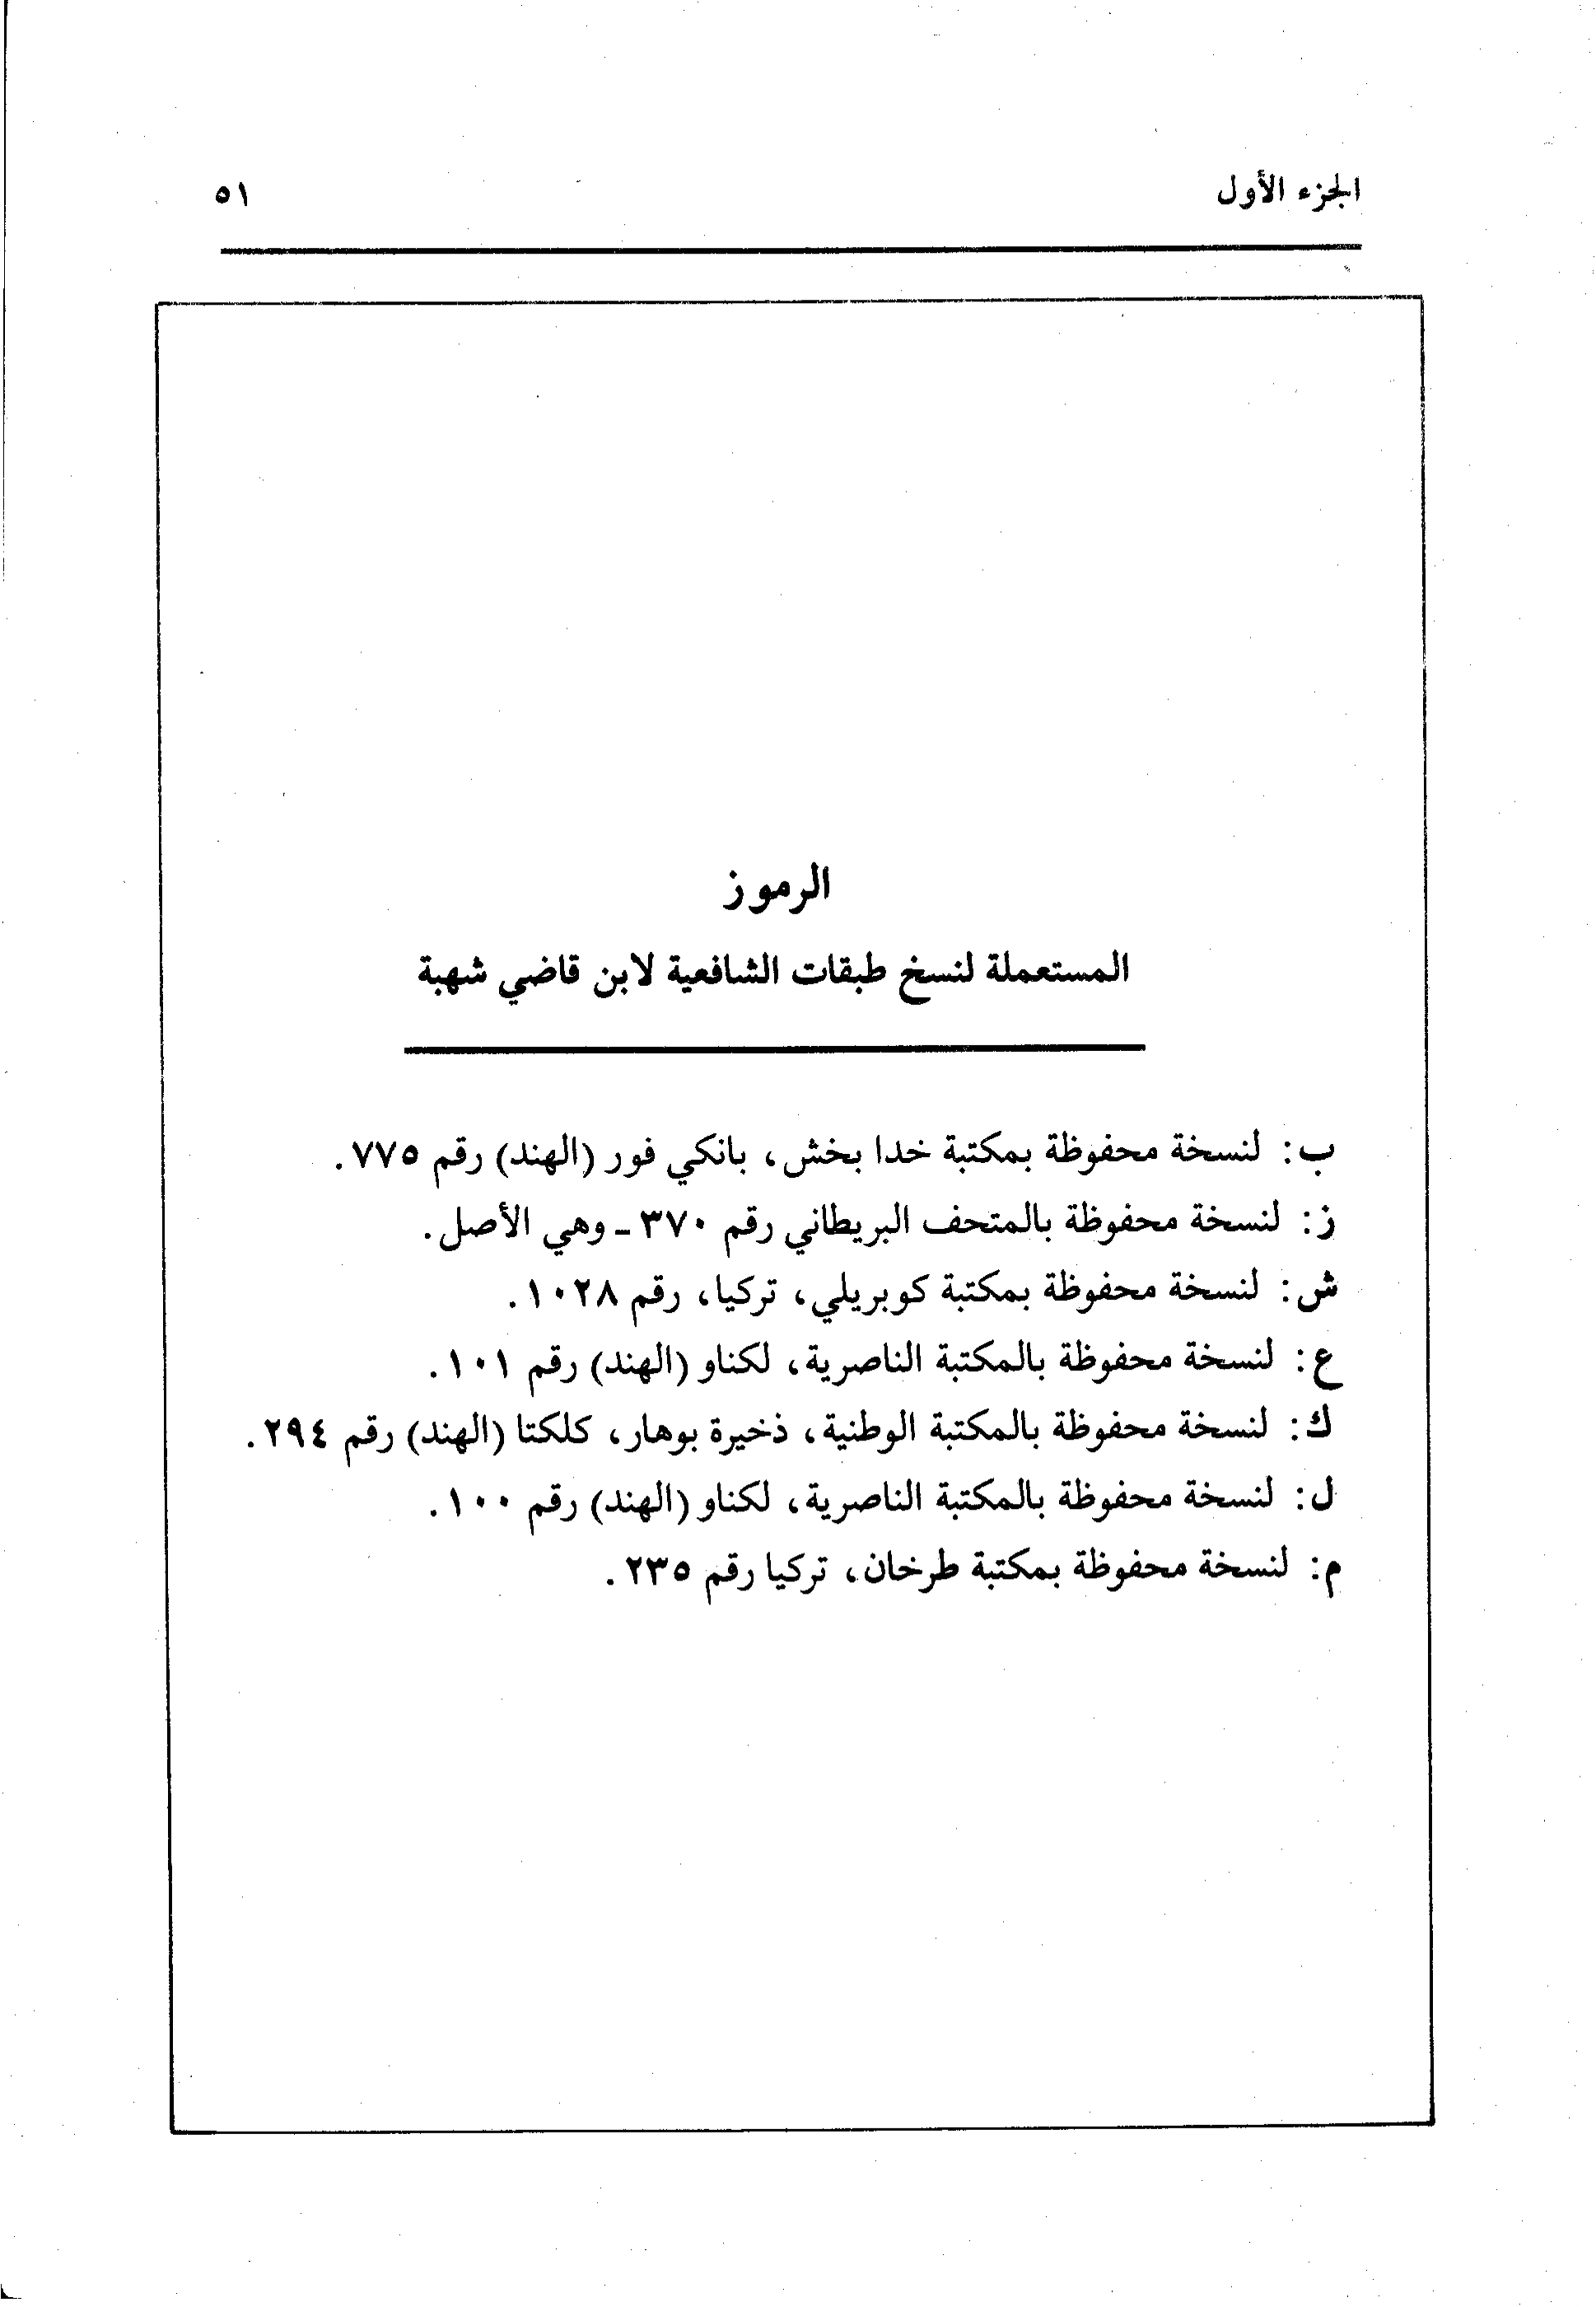 الجزء الأول ٥١
الرموز
المستعملة لنسخ طبقات الشافعية لابن قاضي شهبة
ب: لنسخة محفوظة بمكتبة خدا بخش، بانكي فور (الهند) رقم ٧٧٥.
ز: لنسخة محفوظة بالمتحف البريطاني رقم ٣٧٠ - وهي الأصل.
ش: لنسخة محفوظة بمكتبة كوبريلي، تركيا، رقم ١٠٢٨.
ع: لنسخة محفوظة بالمكتبة الناصرية، لكناو (الهند) رقم ١٠١.
ك: لنسخة محفوظة بالمكتبة الوطنية، ذخيرة بوهار، كلكتا (الهند) رقم ٢٩٤.
ل: لنسخة محفوظة بالمكتبة الناصرية، لكناو (الهند) رقم ١٠٠.
م: لنسخة محفوظة بمكتبة طرخان، تركيا رقم ٢٣٥.